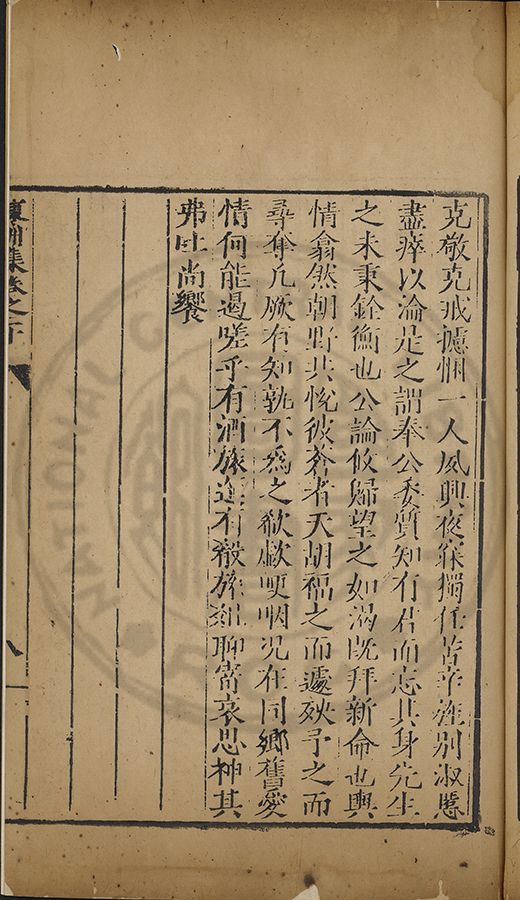 克敬克戒攄悃一人夙興夜寐獨任苦辛旌别淑慝
盡瘁以淪是之謂奉公委質知有君而忘其身先生
之未秉銓衡也公論攸歸望之如渴既拜新命也輿
情翕然朝野共恱彼蒼者天胡福之而遽殃予之而
尋奪凡厥有知孰不爲之欷歔哽咽况在同鄉舊愛
情何能遏嗟乎有酒旅進有殽旅俎聊寄哀思神其
弗吐尚饗
東洲集卷之